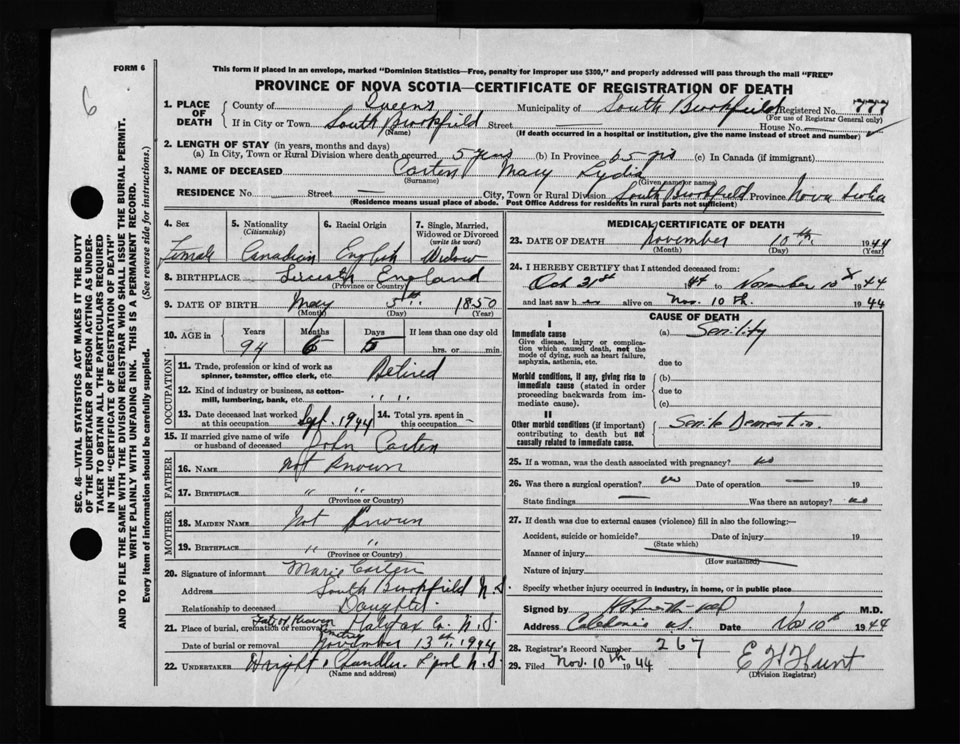 FORM 6
6
This form if placed in an envelope, marked "Dominion Statistics—Free, penalty for improper use $300," and properly addressed will pass through the mail "FREE"
PROVINCE OF NOVA SCOTIA—CERTIFICATE OF REGISTRATION OF DEATH
1. PLACE OF DEATH County of Queens Municipality of South Brookfield Registered No. 777
(For use of Registrar General only)
If in City or Town South Brookfield Street House No.
(Name) (If death occurred in a hospital or institution, give the name instead of street and number)
2. LENGTH OF STAY (in years, months and days)
(a) In City, Town or Rural Division where death occurred 5 years (b) In Province 65 yrs (c) In Canada (if immigrant)
3. NAME OF DECEASED Carten Mary Lydia
(Surname) (Given name or names)
RESIDENCE No. Street — City, Town or Rural Division South Brookfield Province Nova Scotia
(Residence means usual place of abode. Post Office Address for residents in rural parts not sufficient)
4. Sex 5. Nationality (Citizenship) 6. Racial Origin 7. Single, Married, Widowed or Divorced (write the word)
Female Canadian English Widow
8. BIRTHPLACE England
(Province or Country)
9. DATE OF BIRTH May 5th 1850
(Month) (Day) (Year)
10. AGE in Years Months Days If less than one day old
94 6 5 hrs. or min.
OCCUPATION
11. Trade, profession or kind of work as spinner, teamster, office clerk, etc. Retired
12. Kind of industry or business, as cotton-mill, lumbering, bank, etc. " "
13. Date deceased last worked at this occupation Sept. 1944 14. Total yrs. spent in this occupation —
15. If married give name of wife or husband of deceased John Carten
FATHER
16. NAME Not Known
17. BIRTHPLACE " "
(Province or Country)
MOTHER
18. MAIDEN NAME Not Known
19. BIRTHPLACE " "
(Province or Country)
20. Signature of informant Marie Carten
Address South Brookfield N.S.
Relationship to deceased Daughter
21. Place of burial, cremation or removal Gate of Heaven Halifax Co. N.S.
Date of burial or removal November 13th, 1944
22. UNDERTAKER Wright & Chandler L'pool N.S.
(Name and address)
MEDICAL CERTIFICATE OF DEATH
23. DATE OF DEATH November 10th 1944
(Month) (Day) (Year)
24. I HEREBY CERTIFY that I attended deceased from:
Oct 21st 1944 to November 10 1944
and last saw h alive on Nov. 10th. 1944
CAUSE OF DEATH
I
Immediate cause (a) Senility
Give disease, injury or complication which caused death, not the mode of dying, such as heart failure, asphyxia, asthenia, etc.
due to
Morbid conditions, if any, giving rise to immediate cause (stated in order proceeding backwards from immediate cause).
(b)
due to
(c)
II
Other morbid conditions (if important) contributing to death but not causally related to immediate cause. Senile Dementia.
25. If a woman, was the death associated with pregnancy? no
26. Was there a surgical operation? no Date of operation — 19
State findings — Was there an autopsy? no
27. If death was due to external causes (violence) fill in also the following:—
Accident, suicide or homicide? Date of injury 19
(State which)
Manner of injury
(How sustained)
Nature of injury
Specify whether injury occurred in industry, in home, or in public place
Signed by M.D.
Address Caledonia N.S. Date Nov 10th 1944
28. Registrar's Record Number 267
29. Filed Nov. 10th 1944 E H Hunt
(Division Registrar)
SEC. 46—VITAL STATISTICS ACT MAKES IT THE DUTY
OF THE UNDERTAKER OR PERSON ACTING AS UNDER-
TAKER TO OBTAIN ALL THE PARTICULARS REQUIRED
IN THE "CERTIFICATE OF REGISTRATION OF DEATH"
AND TO FILE THE SAME WITH THE DIVISION REGISTRAR WHO SHALL ISSUE THE BURIAL PERMIT.
WRITE PLAINLY WITH UNFADING INK. THIS IS A PERMANENT RECORD.
Every item of information should be carefully supplied. (See reverse side for instructions.)